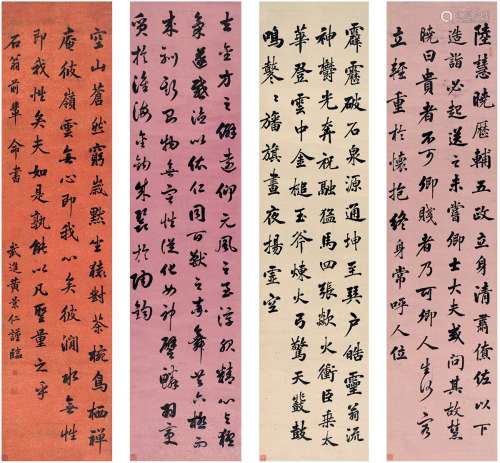 陸慧曉歷輔五政立身清肅僚佐以下
造詣必起送之未嘗卿士大夫或問其故慧
曉曰貴者不可卿賤者乃可卿人生何容
立輕重於懷抱終身常呼人位
霹靂破石泉源通坤王巽户皓靈翁流
神欝光奔祝融猛馬四張歘火衝臣乘太
華登雲中金槌玉斧煉火弓驚天鼖鼓
鳴鼕鼕旛旗晝夜揚靈空
去金方之僻遠仰元風之至淳服精心之極
氣遂感德以依仁因百獸之率舞共六極而
來馴乃知物無定性從化如神譬鱗羽變
質於淮海金鉤朱於陶鈞
空山蒼然窮歲默坐猿對茶椀鳥栖禪
庵彼嶺雲無心即我心矣彼澗水無性
即我性矣夫如是孰能以凡聖量之乎
石翁前輩 命書
武進黃景仁謹臨